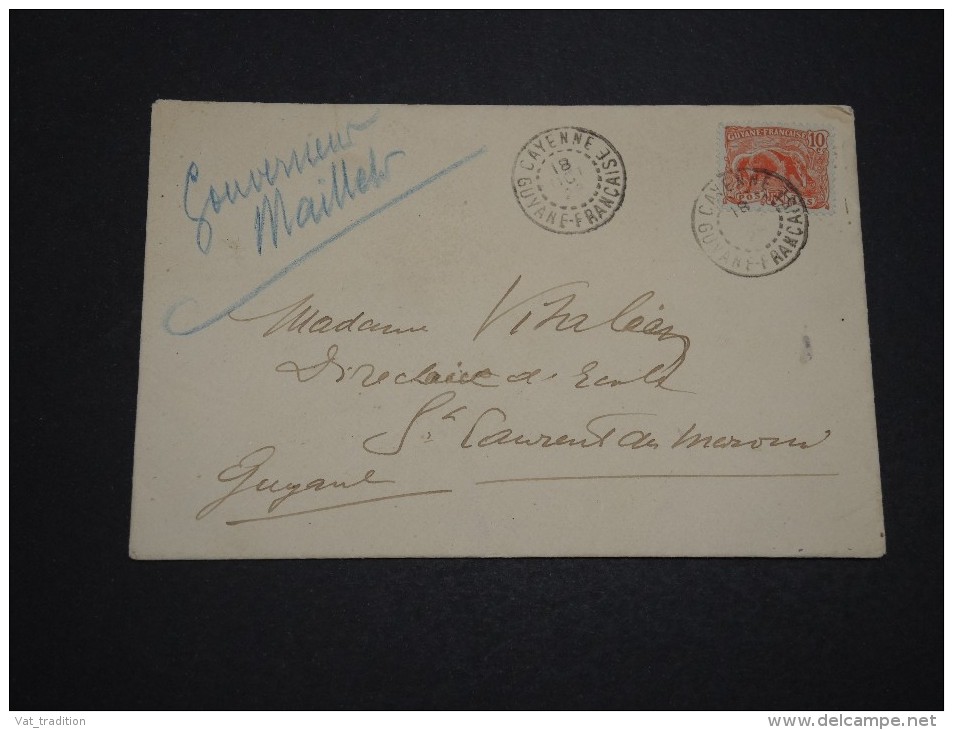 Gouverneur
Maillet
CAYENNE
18
GUYANE-FRANÇAISE
GUYANE-FRANÇAISE
10
POSTES
CAYENNE
18
GUYANE-FRANÇAISE
Madame Vitalien
Directrice d'Ecole
St Laurent du Maroni
Guyane
Vat_tradition
www.delcampe.net